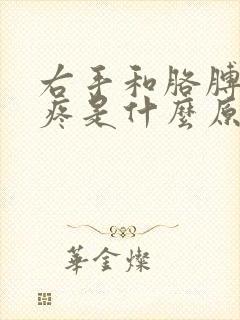 右手和胳膊
疼是什麼原
華金燦